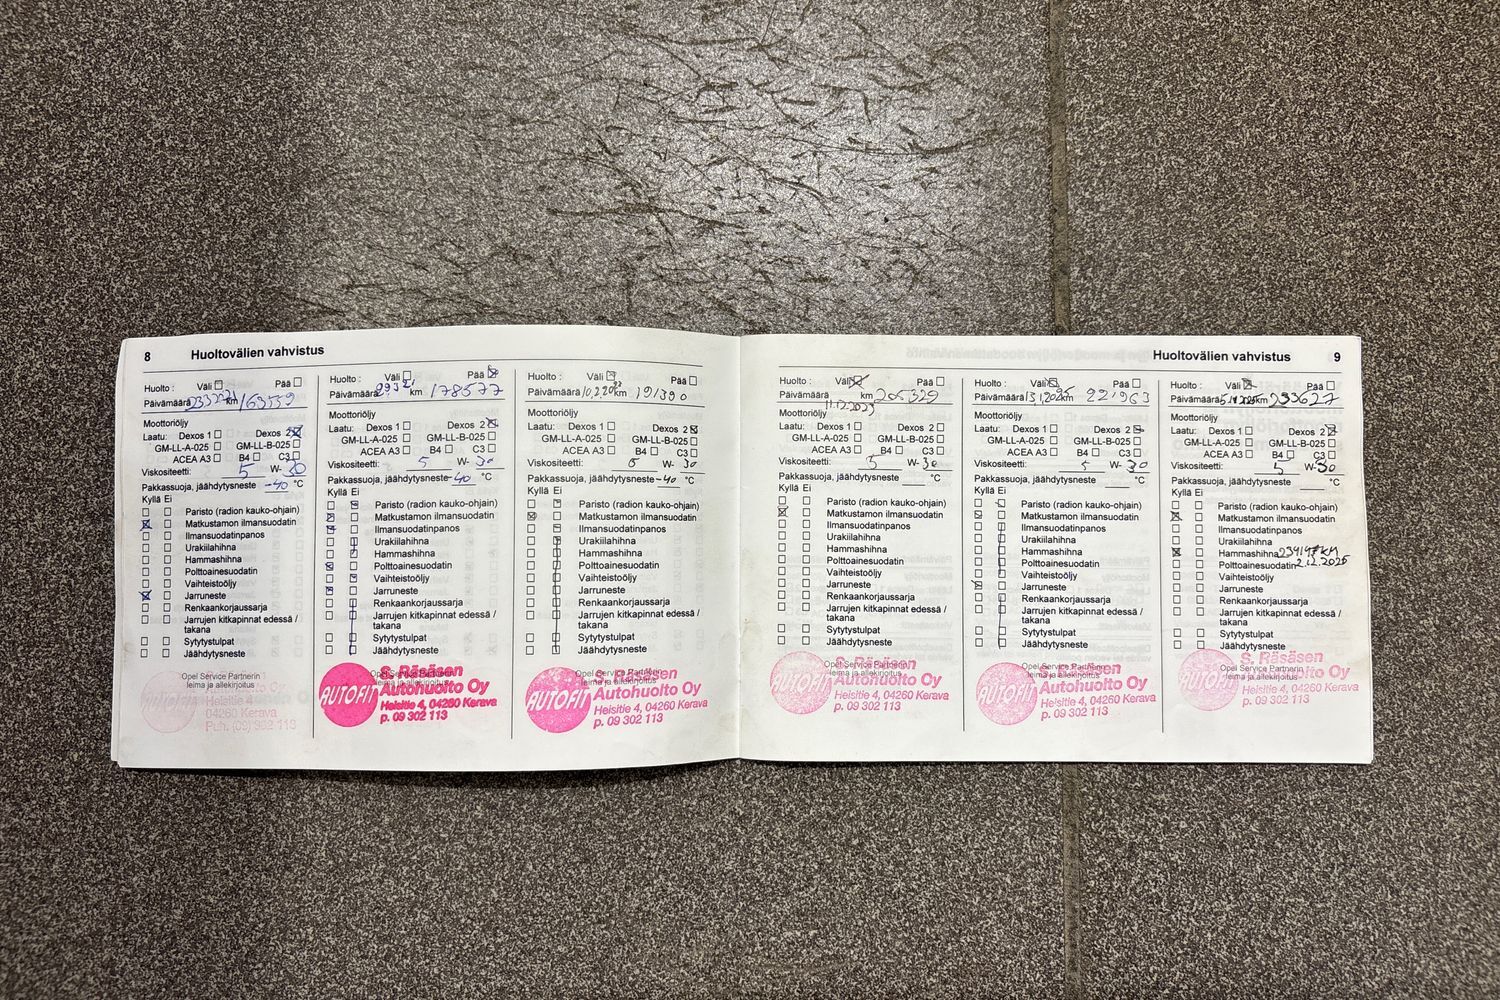 8 Huoltovälien vahvistus
Huolto : Väli Pää
Päivämäärä km 163559
Moottoriöljy
Laatu: Dexos 1 Dexos 2
GM-LL-A-025 GM-LL-B-025
ACEA A3 B4 C3
Viskositeetti: 5 W- 30
Pakkassuoja, jäähdytysneste -40 °C
Kyllä Ei
Paristo (radion kauko-ohjain)
Matkustamon ilmansuodatin
Ilmansuodatinpanos
Urakiilahihna
Hammashihna
Polttoainesuodatin
Vaihteistoöljy
Jarruneste
Renkaankorjaussarja
Jarrujen kitkapinnat edessä /
takana
Sytytystulpat
Jäähdytysneste
Opel Service Partnerin
leima ja allekirjoitus
AUTOFIT
Heisitie 4
04260 Kerava
Puh. (09) 302 113
Huolto : Väli Pää
Päivämäärä km 178577
Moottoriöljy
Laatu: Dexos 1 Dexos 2
GM-LL-A-025 GM-LL-B-025
ACEA A3 B4 C3
Viskositeetti: 5 W- 30
Pakkassuoja, jäähdytysneste -40 °C
Kyllä Ei
Paristo (radion kauko-ohjain)
Matkustamon ilmansuodatin
Ilmansuodatinpanos
Urakiilahihna
Hammashihna
Polttoainesuodatin
Vaihteistoöljy
Jarruneste
Renkaankorjaussarja
Jarrujen kitkapinnat edessä /
takana
Sytytystulpat
Jäähdytysneste
Opel Service Partnerin
leima ja allekirjoitus
AUTOFIT
S. Räsäsen
Autohuolto Oy
Heisitie 4, 04260 Kerava
p. 09 302 113
Huolto : Väli Pää
Päivämäärä km 191390
Moottoriöljy
Laatu: Dexos 1 Dexos 2
GM-LL-A-025 GM-LL-B-025
ACEA A3 B4 C3
Viskositeetti: 5 W- 30
Pakkassuoja, jäähdytysneste -40 °C
Kyllä Ei
Paristo (radion kauko-ohjain)
Matkustamon ilmansuodatin
Ilmansuodatinpanos
Urakiilahihna
Hammashihna
Polttoainesuodatin
Vaihteistoöljy
Jarruneste
Renkaankorjaussarja
Jarrujen kitkapinnat edessä /
takana
Sytytystulpat
Jäähdytysneste
Opel Service Partnerin
leima ja allekirjoitus
AUTOFIT
S. Räsäsen
Autohuolto Oy
Heisitie 4, 04260 Kerava
p. 09 302 113
Huoltovälien vahvistus 9
Huolto : Väli Pää
Päivämäärä 11.12.2023 km 205329
Moottoriöljy
Laatu: Dexos 1 Dexos 2
GM-LL-A-025 GM-LL-B-025
ACEA A3 B4 C3
Viskositeetti: 5 W- 30
Pakkassuoja, jäähdytysneste °C
Kyllä Ei
Paristo (radion kauko-ohjain)
Matkustamon ilmansuodatin
Ilmansuodatinpanos
Urakiilahihna
Hammashihna
Polttoainesuodatin
Vaihteistoöljy
Jarruneste
Renkaankorjaussarja
Jarrujen kitkapinnat edessä /
takana
Sytytystulpat
Jäähdytysneste
Opel Service Partnerin
leima ja allekirjoitus
AUTOFIT
S. Räsäsen
Autohuolto Oy
Heisitie 4, 04260 Kerava
p. 09 302 113
Huolto : Väli Pää
Päivämäärä km 221963
Moottoriöljy
Laatu: Dexos 1 Dexos 2
GM-LL-A-025 GM-LL-B-025
ACEA A3 B4 C3
Viskositeetti: 5 W- 30
Pakkassuoja, jäähdytysneste °C
Kyllä Ei
Paristo (radion kauko-ohjain)
Matkustamon ilmansuodatin
Ilmansuodatinpanos
Urakiilahihna
Hammashihna
Polttoainesuodatin
Vaihteistoöljy
Jarruneste
Renkaankorjaussarja
Jarrujen kitkapinnat edessä /
takana
Sytytystulpat
Jäähdytysneste
Opel Service Partnerin
leima ja allekirjoitus
AUTOFIT
S. Räsäsen
Autohuolto Oy
Heisitie 4, 04260 Kerava
p. 09 302 113
Huolto : Väli Pää
Päivämäärä km 233627
Moottoriöljy
Laatu: Dexos 1 Dexos 2
GM-LL-A-025 GM-LL-B-025
ACEA A3 B4 C3
Viskositeetti: 5 W- 30
Pakkassuoja, jäähdytysneste °C
Kyllä Ei
Paristo (radion kauko-ohjain)
Matkustamon ilmansuodatin
Ilmansuodatinpanos
Urakiilahihna
Hammashihna KM
Polttoainesuodatin 2.12.2025
Vaihteistoöljy
Jarruneste
Renkaankorjaussarja
Jarrujen kitkapinnat edessä /
takana
Sytytystulpat
Jäähdytysneste
Opel Service Partnerin
leima ja allekirjoitus
AUTOFIT
S. Räsäsen
Autohuolto Oy
Heisitie 4, 04260 Kerava
p. 09 302 113